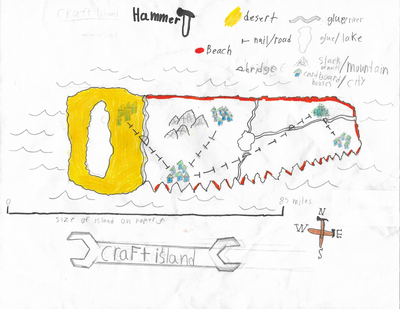 Craft Island
Hammer
desert
glue/river
Beach
nail/road
glue/lake
bridge
/mountain
cardboard
houses/city
0
85 miles
size of island on paper
N
W E
S
Craft island